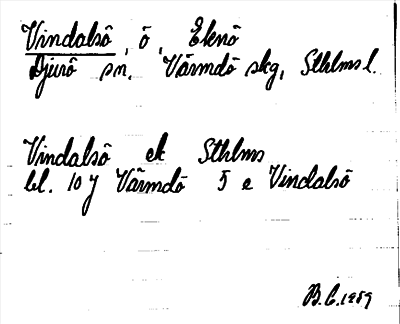 Vindalsö, ö, Eknö
Djurö sn. Värmdö skg, Sthlms l.
Vindalsö ek Sthlms
bl. 10 y Värmdö 5 e Vindalsö
B.C. 1959